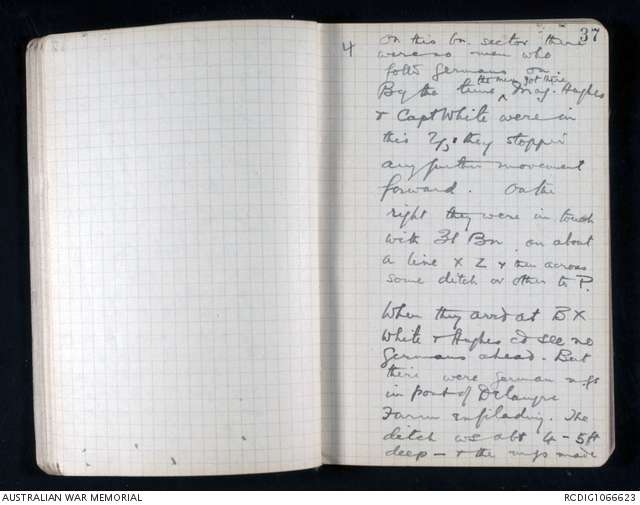 37
4 On this bn. sector there
were no men who
folld Germans on.
By the time ^the men got there Maj. Hughes
& Capt White were in
this & they stopped
any further movement
forward. On the
right they were in touch
with 31 Bn. on about
a line X Z & then across
some ditch or other to P.
When they arrd at BX
White & Hughes cd see no
Germans ahead. But
there were German m.gs
in front of Delangre
Farm enfilading. The
ditch ws abt 4-5ft
deep — & the m.gs made
AUSTRALIAN WAR MEMORIAL
RCDIG1066623